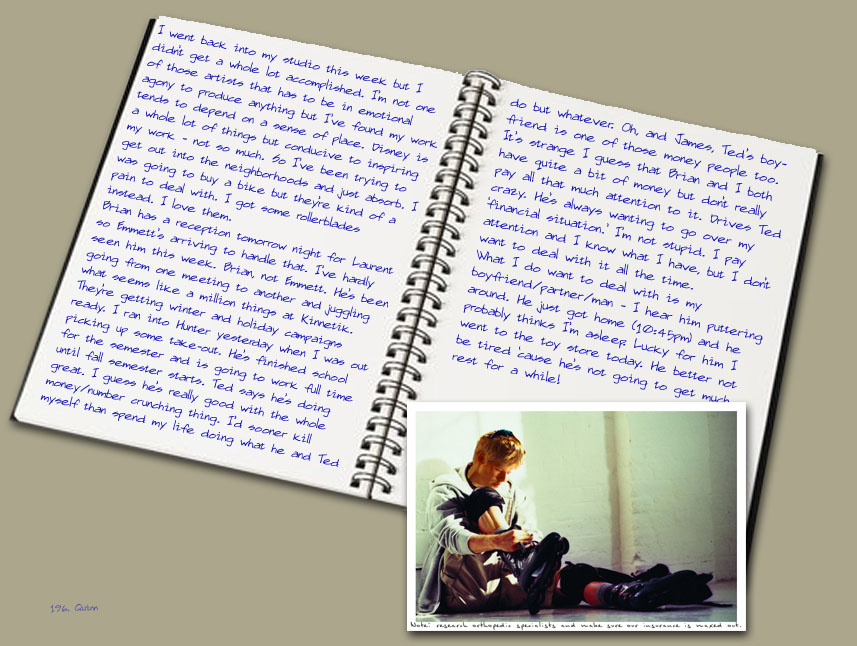 I went back into my studio this week but I
didn't get a whole lot accomplished. I'm not one
of those artists that has to be in emotional
agony to produce anything but I've found my work
tends to depend on a sense of place. Disney is
a whole lot of things but conducive to inspiring
my work - not so much. So I've been trying to
get out into the neighborhoods and just absorb. I
was going to buy a bike but they're kind of a
pain to deal with. I got some rollerblades
instead. I love them.
Brian has a reception tomorrow night for Laurent
so Emmett's arriving to handle that. I've hardly
seen him this week. Brian, not Emmett. He's been
going from one meeting to another and juggling
what seems like a million things at Kinnetik.
They're getting winter and holiday campaigns
ready. I ran into Hunter yesterday when I was out
picking up some take-out. He's finished school
for the semester and is going to work full time
until fall semester starts. Ted says he's doing
great. I guess he's really good with the whole
money/number crunching thing. I'd sooner kill
myself than spend my life doing what he and Ted
do but whatever. Oh, and James, Ted's boy-
friend is one of those money people too.
It's strange I guess that Brian and I both
have quite a bit of money but don't really
pay all that much attention to it. Drives Ted
crazy. He's always wanting to go over my
'financial situation.' I'm not stupid. I pay
attention and I know what I have, but I don't
want to deal with it all the time.
What I do want to deal with is my
boyfriend/partner/man - I hear him puttering
around. He just got home (10:45pm) and he
probably thinks I'm asleep. Lucky for him I
went to the toy store today. He better not
be tired 'cause he's not going to get much
rest for a while!
Note: research orthopedic specialists and make sure our insurance is maxed out.
196. Quinn